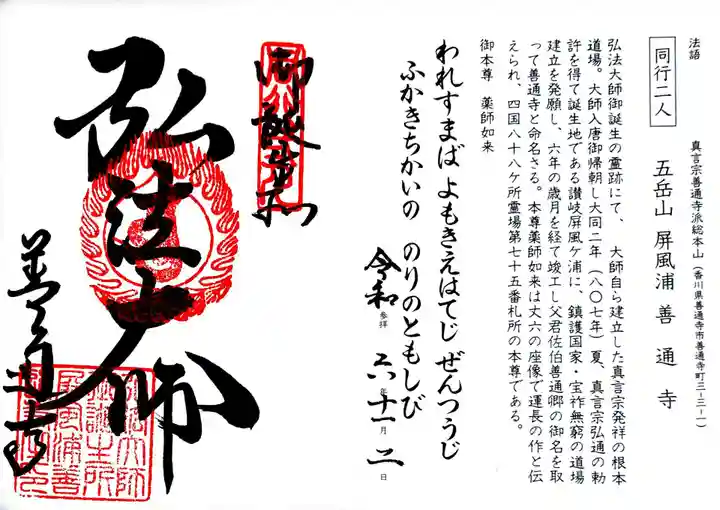 法語
真言宗善通寺派総本山(香川県善通寺市善通寺町三-三-一)
同行二人 五岳山 屏風浦 善通寺
弘法大師御誕生の霊跡にて、 大師自ら建立した真言宗発祥の根本
道場。大師入唐御帰朝し大同二年(八〇七年)夏、真言宗弘通の勅
許を得て誕生地である讃岐屏風ケ浦に、鎮護国家・宝祚無窮の道場
建立を発願し、六年の歳月を経て竣工し父君佐伯善通卿の御名を取
って善通寺と命名さる。本尊薬師如来は丈六の座像で運長の作と伝
えられ、四国八十八ケ所霊場第七十五番札所の本尊である。
御本尊 薬師如来
われすまば よもきえはてじ ぜんつうじ
ふかきちかいの のりのともしび
令和 参拝 六年 十一月 二日
御誕生所
弘法大師
善通寺